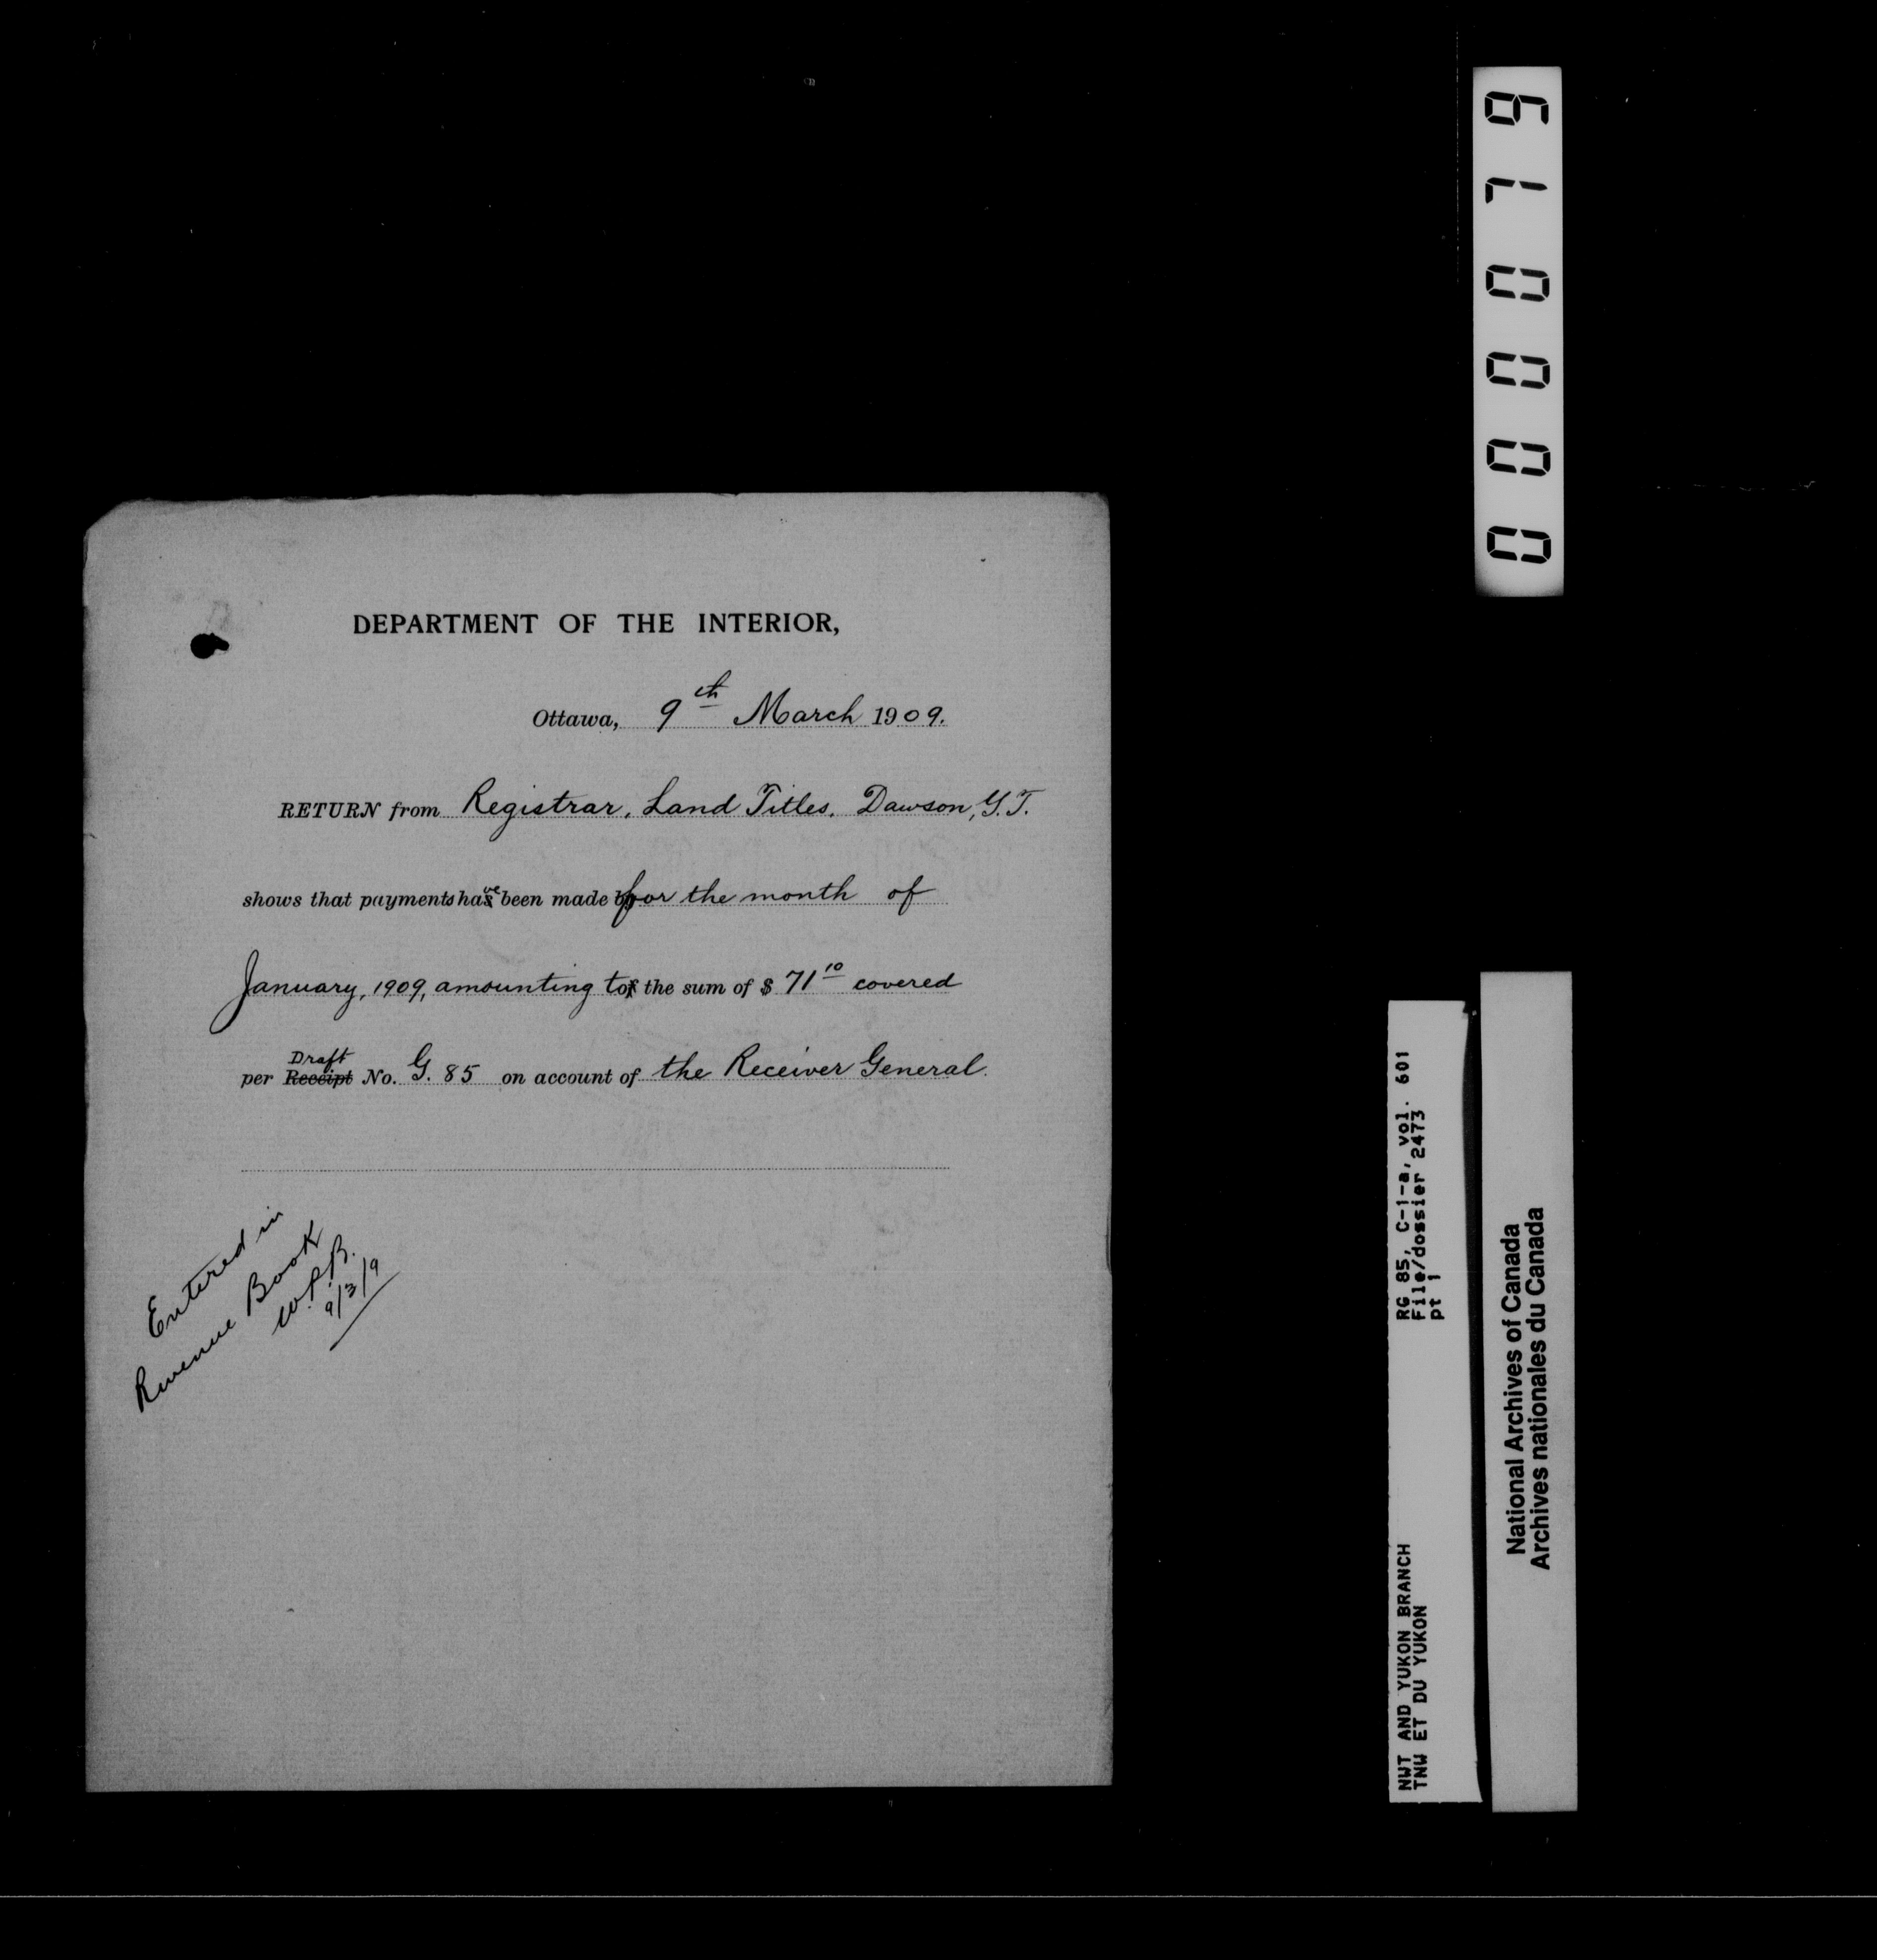 DEPARTMENT OF THE INTERIOR,
Ottawa, 9th March 1909.
RETURN from Registrar, Land Titles, Dawson, Y.T.
shows that payments have been made for the month of
January, 1909, amounting to the sum of $ 71 10 covered
per Receipt Draft No. G. 85 on account of the Receiver General.
Entered in
Revenue Book
W.P.B.
9/3/9
000079
RG 85, C-1-a, vol. 601
File/dossier 2473
pt 1
NWT AND YUKON BRANCH
TNW ET DU YUKON
National Archives of Canada
Archives nationales du Canada